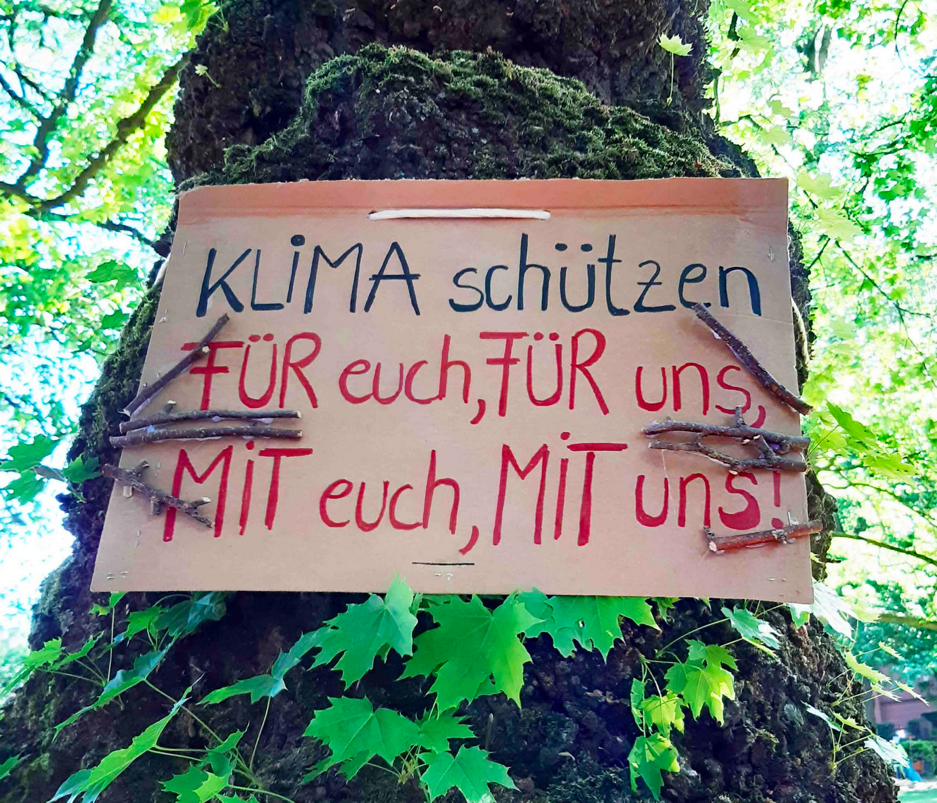 KLiMA schützen
FÜR euch, FÜR uns,
MiT euch, MiT uns!